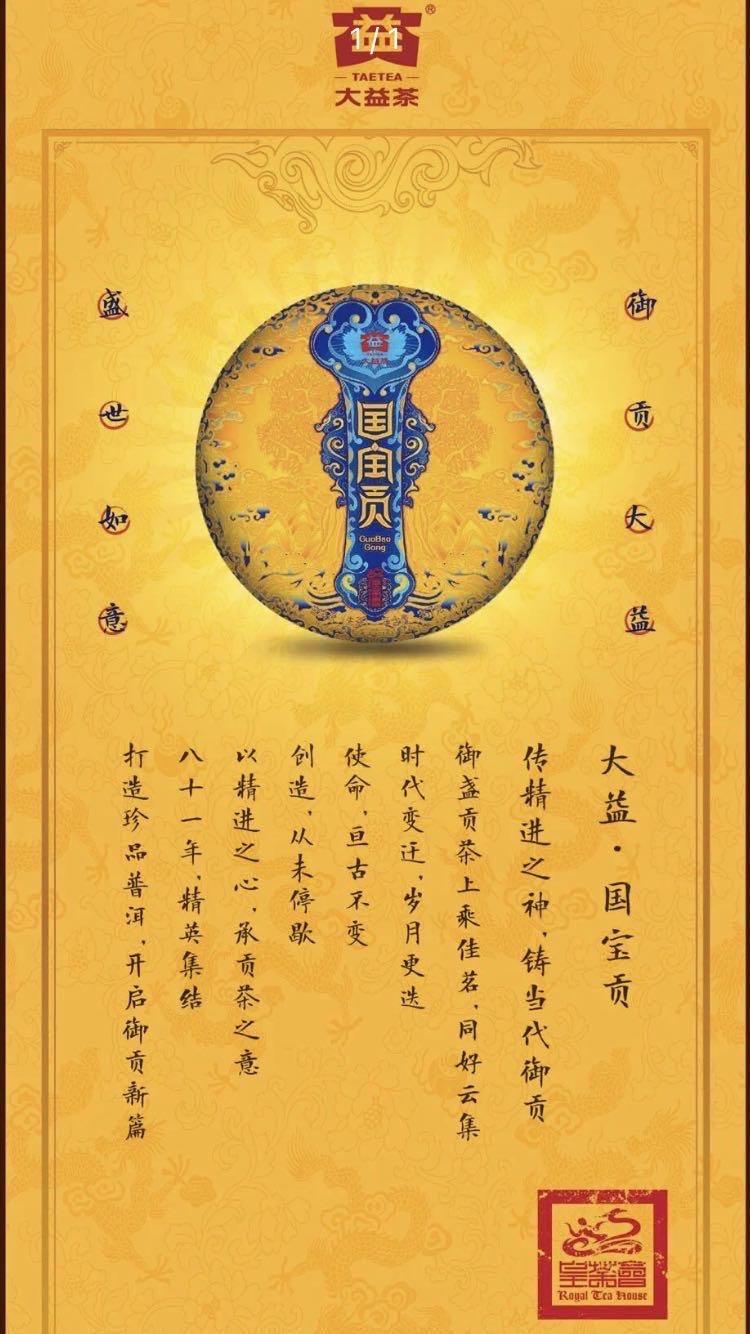 益®
1/1
TAETEA
大益茶
御贡大益
盛世如意
益
大益茶
国宝贡
GuoBao
Gong
大益·国宝贡
传精进之神，铸当代御贡
御盏贡茶上乘佳茗，同好云集
时代变迁，岁月更迭
使命，亘古不变
创造，从未停歇
以精进之心，承贡茶之意
八十一年，精英集结
打造珍品普洱，开启御贡新篇
皇茶會
Royal Tea House